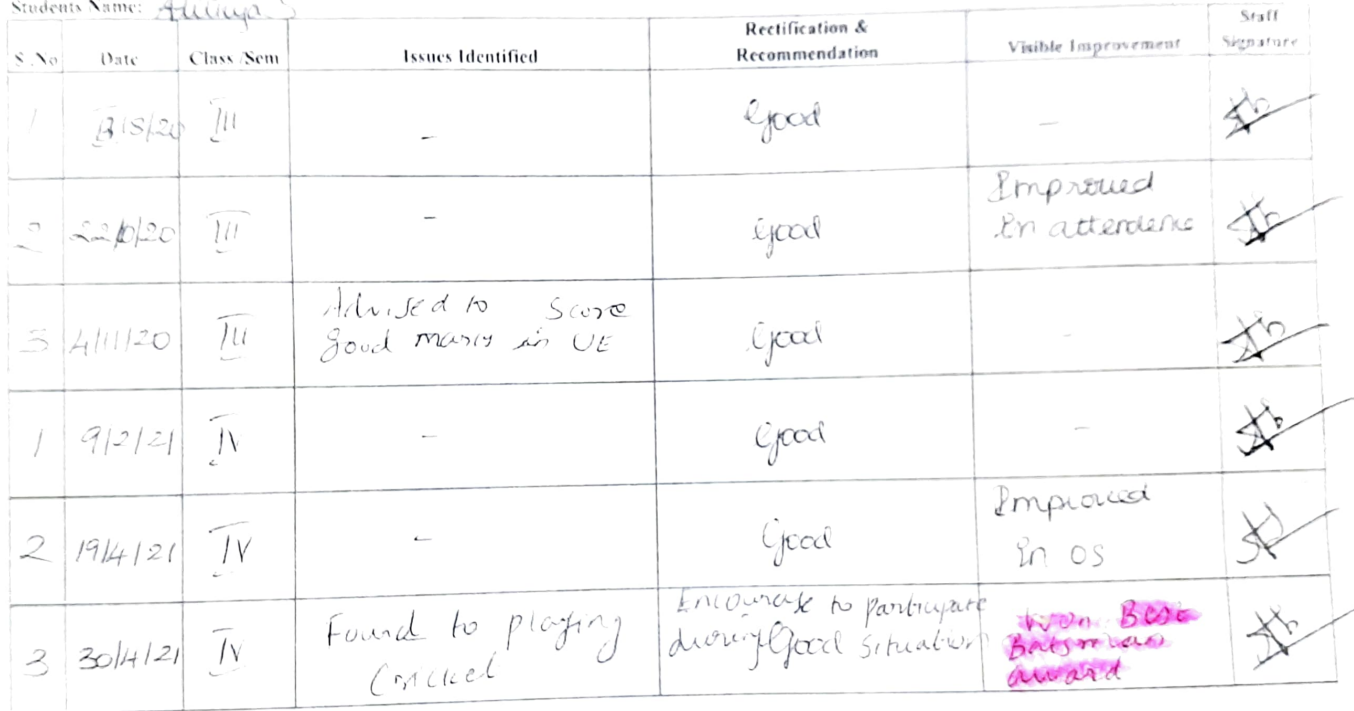 Students Name:
S.No Date Class /Sem Issues Identified Rectification & Recommendation Visible Improvement Staff Signature
1 III - Good -
2 III - Good Improved in attendence
3 4/11/20 III Advised to score good marks in UE Good -
1 9/2/21 IV - Good -
2 19/4/21 IV - Good Improved in OS
3 30/4/21 IV Found to playing Cricket Encourage to participate during Good Situation Won Best Batsman award